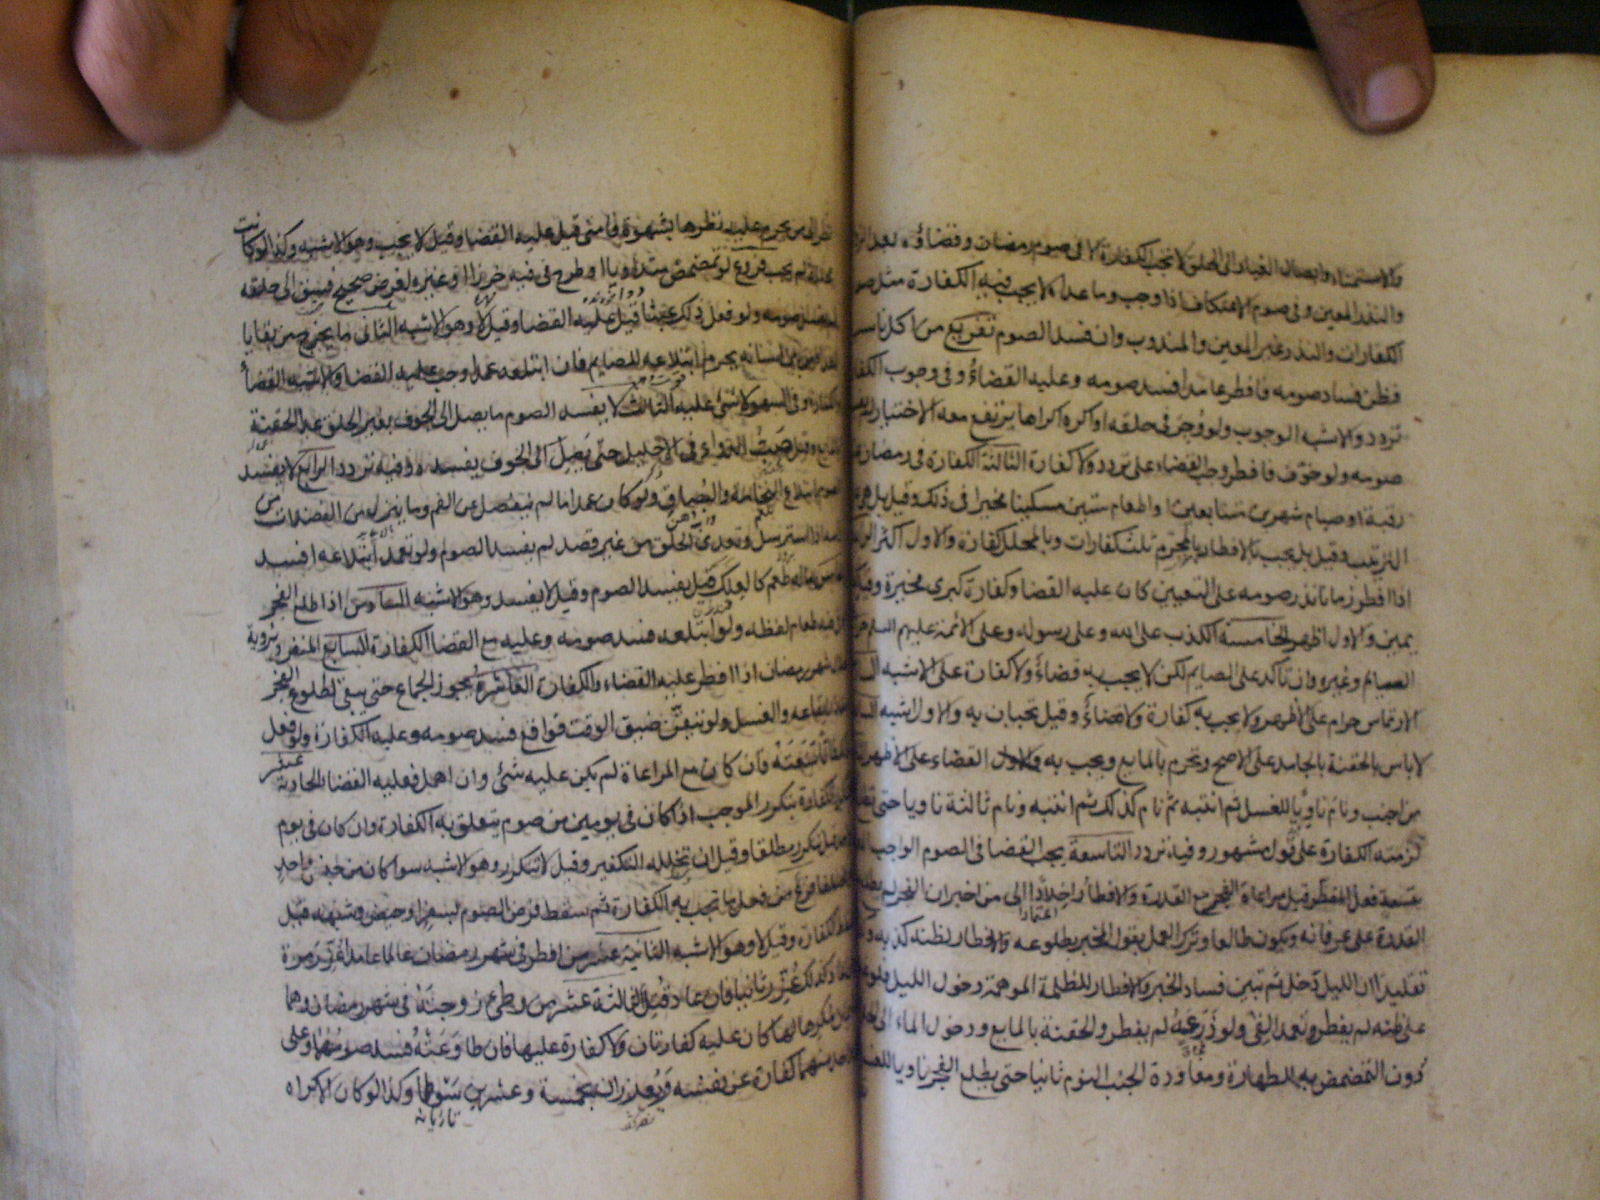 والاستمناء وايصال الغبار الى الحلق لا تجب الكفارة الا فى صوم رمضان وقضاؤه بعد الز
والنذر المعين وفى صوم الاعتكاف اذا وجب وما عداه لا يجب فيه الكفارة مثل صو
الكفارات والنذر غير المعين والمندوب وان فسد الصوم تفريع من اكل ناسيا
فظن فساد صومه فافطر عامدا فسد صومه وعليه القضاء وفى وجوب الكفا
تردد والاشبه الوجوب ولو وجر فى حلقه او اكره اكراها يرتفع معه الاختيار
صومه ولو خوف فافطر وجب القضاء على تردد ولا كفارة الثالثة الكفارة فى رمضان
رقبة او صيام شهرين متتابعين او اطعام ستين مسكينا مخيرا فى ذلك وقيل بل هى
الترتيب وقيل بل يجب بالافطار بالمحرم ثلث كفارات وبالمحلل كفارة والاول اكثر الرا
اذا افطر زمانا نذر صومه على التعيين كان عليه القضا وكفارة كبرى مخيرة وقيل
يمين والاول اظهر الخامسة الكذب على الله وعلى رسوله وعلى الائمة عليهم السلم
الصايم وغيره وان تاكد على الصايم لكن لا يجب به قضاء ولا كفارة على الاشبه
الارتماس حرام على الاظهر ولا يجب به كفارة ولا قضاء وقيل يجبان به والاول اشبه
لا باس بالحقنة بالجامد على الاصح ويحرم بالمايع ويجب به القضاء على الاظهر
من اجنب ونام ناويا للغسل ثم انتبه ثم نام كذلك ثم انتبه ونام ثالثة ناويا حتى
لزمته الكفارة على قول مشهور وفيه تردد التاسعة يجب القضا فى الصوم الواجب
بتسعة فعل المفطر قبل مراعاة الفجر مع القدرة والافطار اخلادا الى من اخبر ان الفجر لم يطلع
القدرة على عرفانه ويكون طالعا وترك العمل بقول المخبر بطلوعه والافطار لظنه كذبه
تقليدا ان الليل دخل ثم تبين فساد الخبر والافطار للظلمة الموهمة دخول الليل فلو
على ظنه لم يفطر وتعمد القئ ولو ذرعه لم يفطر والحقنة بالمايع ودخول الماء الى الحلق
دون التمضمض به للطهارة ومعاودة الجنب النوم ثانيا حتى يطلع الفجر ناويا للغسل
نظر الى من يحرم عليه نظرها بشهوة فامنى قيل عليه القضا وقيل لا يجب وهو الاشبه وكذا لو كانت
محللة لم يجب فروع لو تمضمض متداويا او طرح فى فيه خرزا او غيره لغرض صحيح فسبق الى حلقه
لم يفسد صومه ولو فعل ذلك عبثا قيل عليه القضا وقيل لا وهو الاشبه الثانى ما يخرج من بقايا
الغذاء من بين اسنانه يحرم ابتلاعه للصايم فان ابتلعه عمدا وجب عليه القضا والاشبه القضاء
والكفارة وفى السهو لا شئ عليه الثالث لا يفسد الصوم ما يصل الى الجوف بغير الحلق عدا الحقنة
بالمايع وقيل صب الدواء فى الاحليل حتى يصل الى الجوف يفسده وفيه تردد الرابع لا يفسد
الصوم ابتلاع النخامة والبصاق ولو كان عمدا ما لم ينفصل عن الفم وما ينزل من الفضلات من
اذا استرسل وتعدى الحلق من غير قصد لم يفسد الصوم ولو تعمد ابتلاعه افسد
ما له طعم كالعلك قيل يفسد الصوم وقيل لا يفسد وهو الاشبه السادس اذا طلع الفجر
وفى فيه طعام لفظه ولو ابتلعه فسد صومه وعليه مع القضا الكفارة السابع المنفرد برؤية
هلال شهر رمضان اذا افطر عليه القضاء والكفارة العاشرة يجوز الجماع حتى يبقى لطلوع الفجر
ايقاعه والغسل ولو تيقن ضيق الوقت فواقع فسد صومه وعليه الكفارة ولو فعل
ظانا سعته فان كان مع المراعاة لم يكن عليه شئ وان اهمل فعليه القضا الحادية عشر
الكفارة بتكرر الموجب اذا كان فى يومين من صوم يتعلق به الكفارة وان كان فى يوم
قيل تكرر مطلقا وقيل ان تخلله التكفير وقيل لا تتكرر وهو الاشبه سوا كان من جنس واحد
مختلفا فرع من فعل ما تجب به الكفارة ثم سقط فرض الصوم لسفر او حيض وشبهه قيل
الكفارة وقيل لا وهو الاشبه الثانية عشر من افطر فى شهر رمضان عالما عامدا عزر مرة
كذلك عزر ثانيا فان عاد قتل الثالثة عشر من وطئ زوجته فى شهر رمضان وهما
مكرها لها كان عليه كفارتان ولا كفارة عليها فان طاوعته فسد صومهما وعلى
واحد منهما كفارة عن نفسه ويعزران بخمسة وعشرين سوطا وكذا لو كان الاكراه
تازيانه